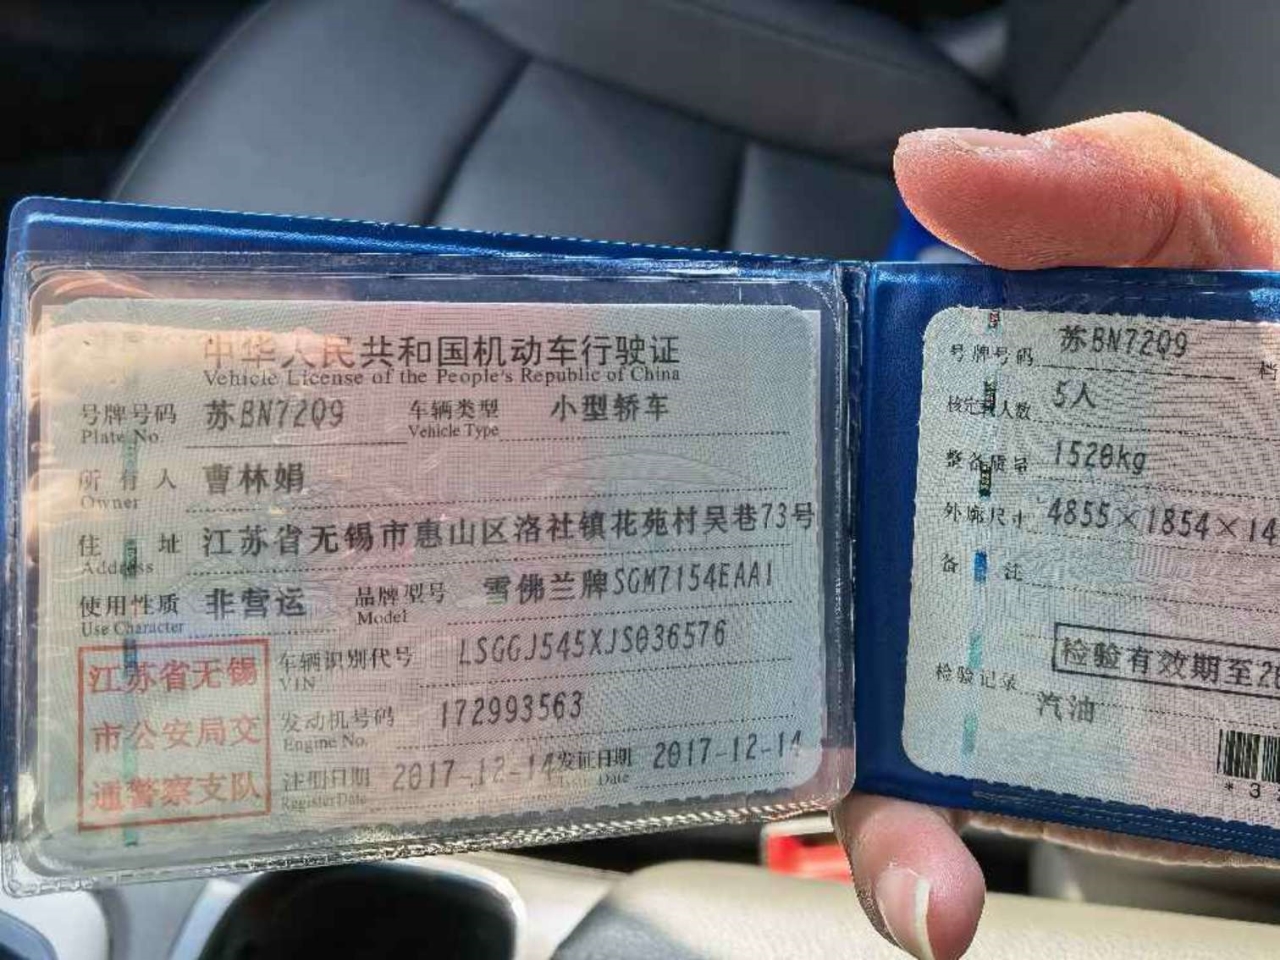 中华人民共和国机动车行驶证
Vehicle License of the People's Republic of China
号牌号码 苏BN72Q9 车辆类型 小型轿车
Plate No. Vehicle Type
所有人 曹林娟
Owner
住址 江苏省无锡市惠山区洛社镇花苑村吴巷73号
Address
使用性质 非营运 品牌型号 雪佛兰牌SGM7154EAA1
Use Character Model
车辆识别代号 LSGGJ545XJS036576
VIN
发动机号码 172993563
Engine No.
注册日期 2017-12-14 发证日期 2017-12-14
Register Date Issue Date
江苏省无锡
市公安局交
通警察支队
号牌号码 苏BN72Q9 档
核定载人数 5人
整备质量 1520kg
外廓尺寸 4855×1854×14
备注
检验有效期至20
检验记录
汽油
*3